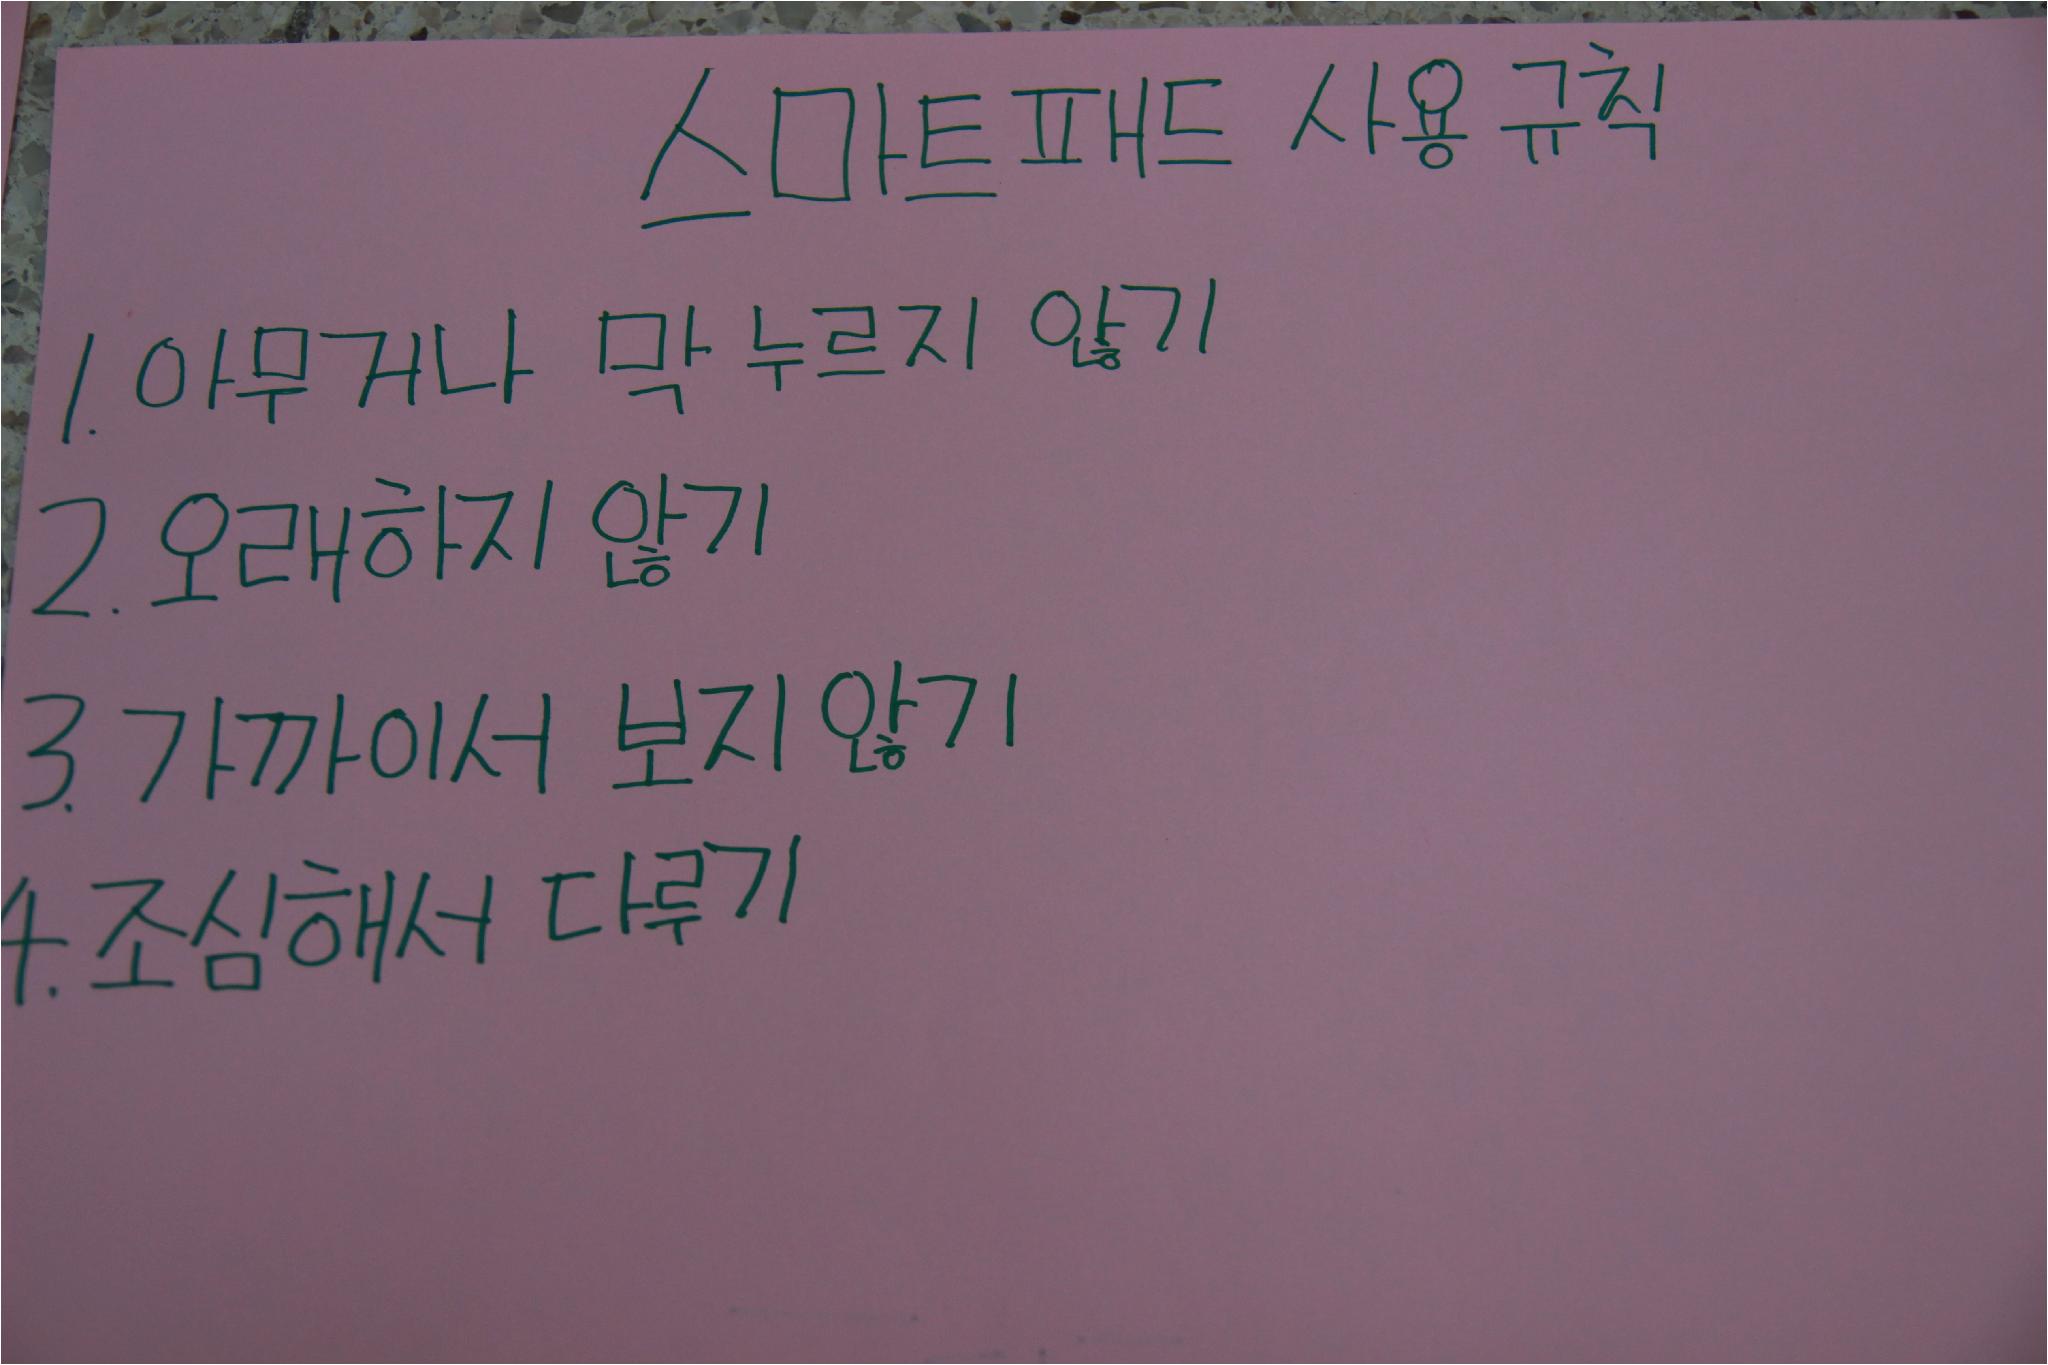 스마트패드 사용규칙
1. 아무거나 막 누르지 않기
2. 오래하지 않기
3. 가까이서 보지 않기
4. 조심해서 다루기